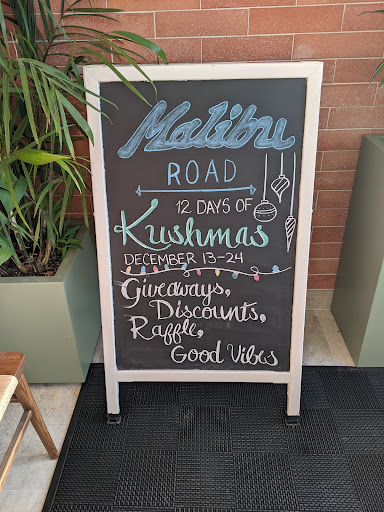 Malibu
ROAD
12 DAYS OF
Kushmas
DECEMBER 13-24
Giveaways,
Discounts,
Raffle,
Good Vibes